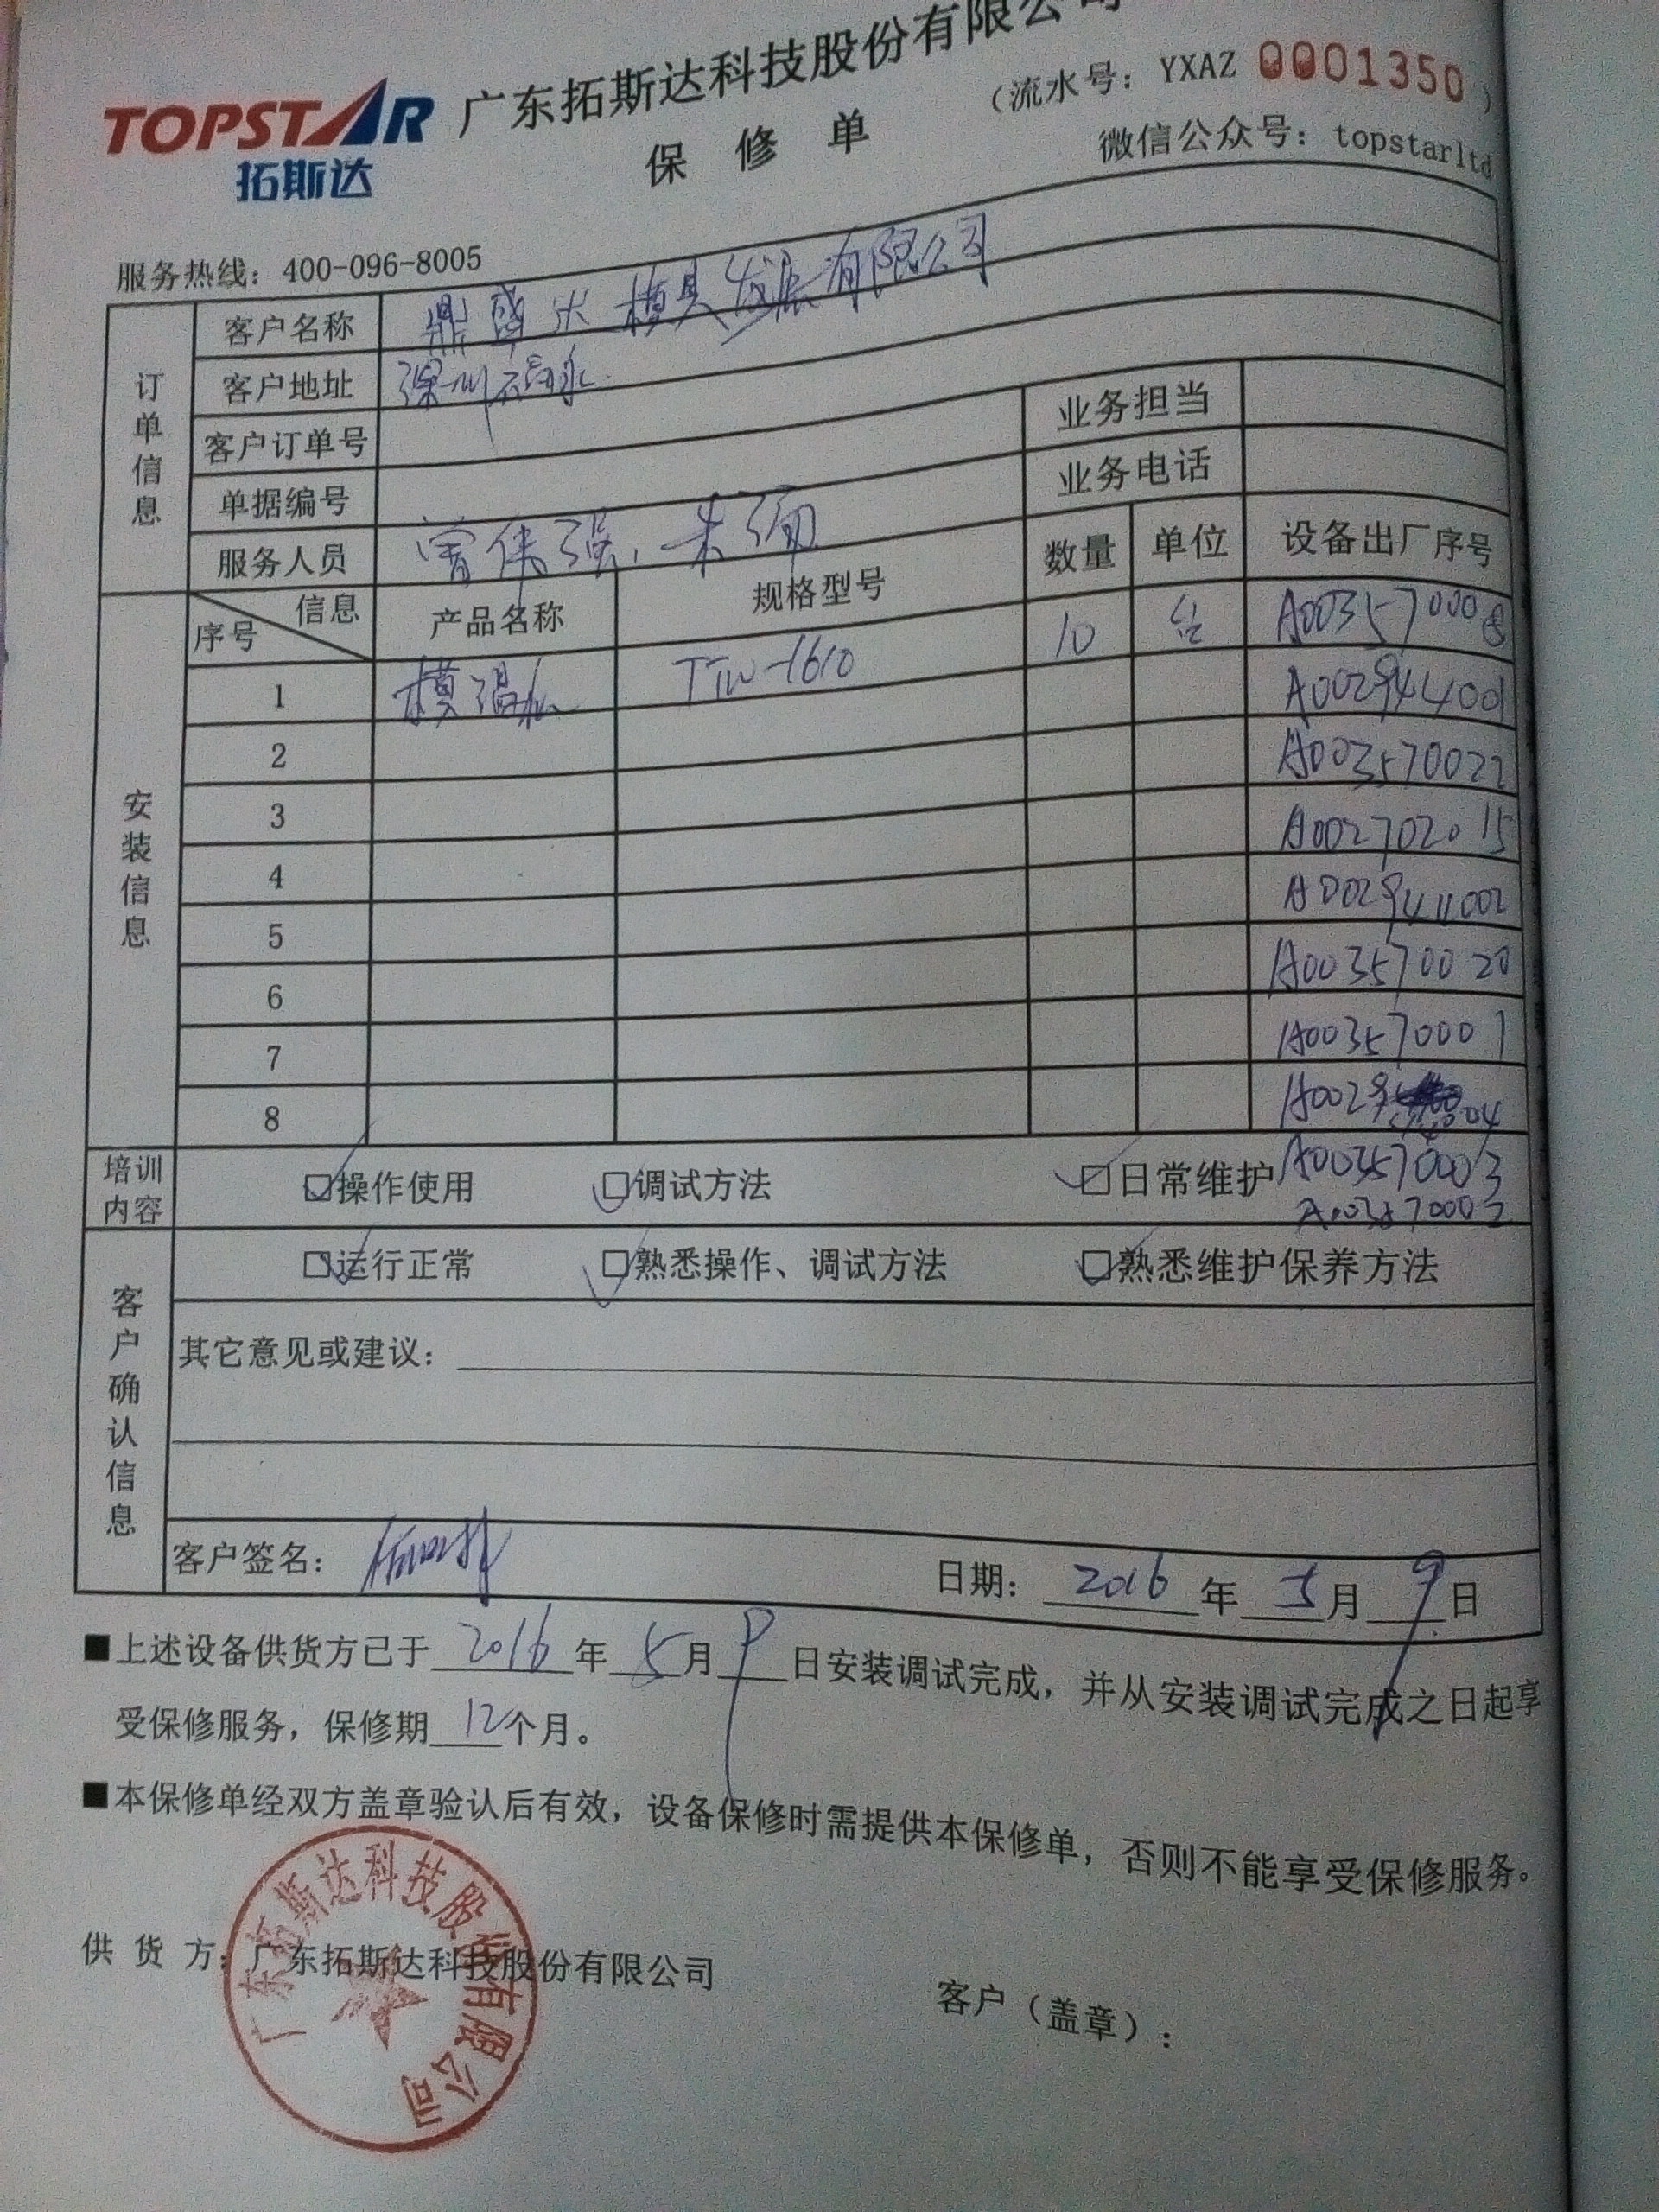 广东拓斯达科技股份有限公司
TOPSTAR
拓斯达
保 修 单
(流水号: YXAZ 0001350)
微信公众号: topstarltd
服务热线: 400-096-8005
订单信息
客户名称 鼎盛达模具发展有限公司
客户地址 深圳
客户订单号 业务担当
单据编号 业务电话
服务人员 曾伟强、朱
安装信息
序号 信息 产品名称 规格型号 数量 单位 设备出厂序号
1 模温机 TTW-1610 10 台 A003570008
2 A002944001
3 A003570022
4 A002702015
5 A002944002
6 A003570020
7 A003570001
8 A0029 04
A003570003
A003570002
培训内容 操作使用 调试方法 日常维护
客户确认信息
运行正常 熟悉操作、调试方法 熟悉维护保养方法
其它意见或建议:
客户签名: 日期: 2016 年 5 月 9 日
■上述设备供货方已于 2016 年 5 月 9 日安装调试完成，并从安装调试完成之日起享
受保修服务，保修期 12 个月。
■本保修单经双方盖章验认后有效，设备保修时需提供本保修单，否则不能享受保修服务。
供 货 方: 广东拓斯达科技股份有限公司
客户（盖章）:
广东拓斯达科技股份有限公司